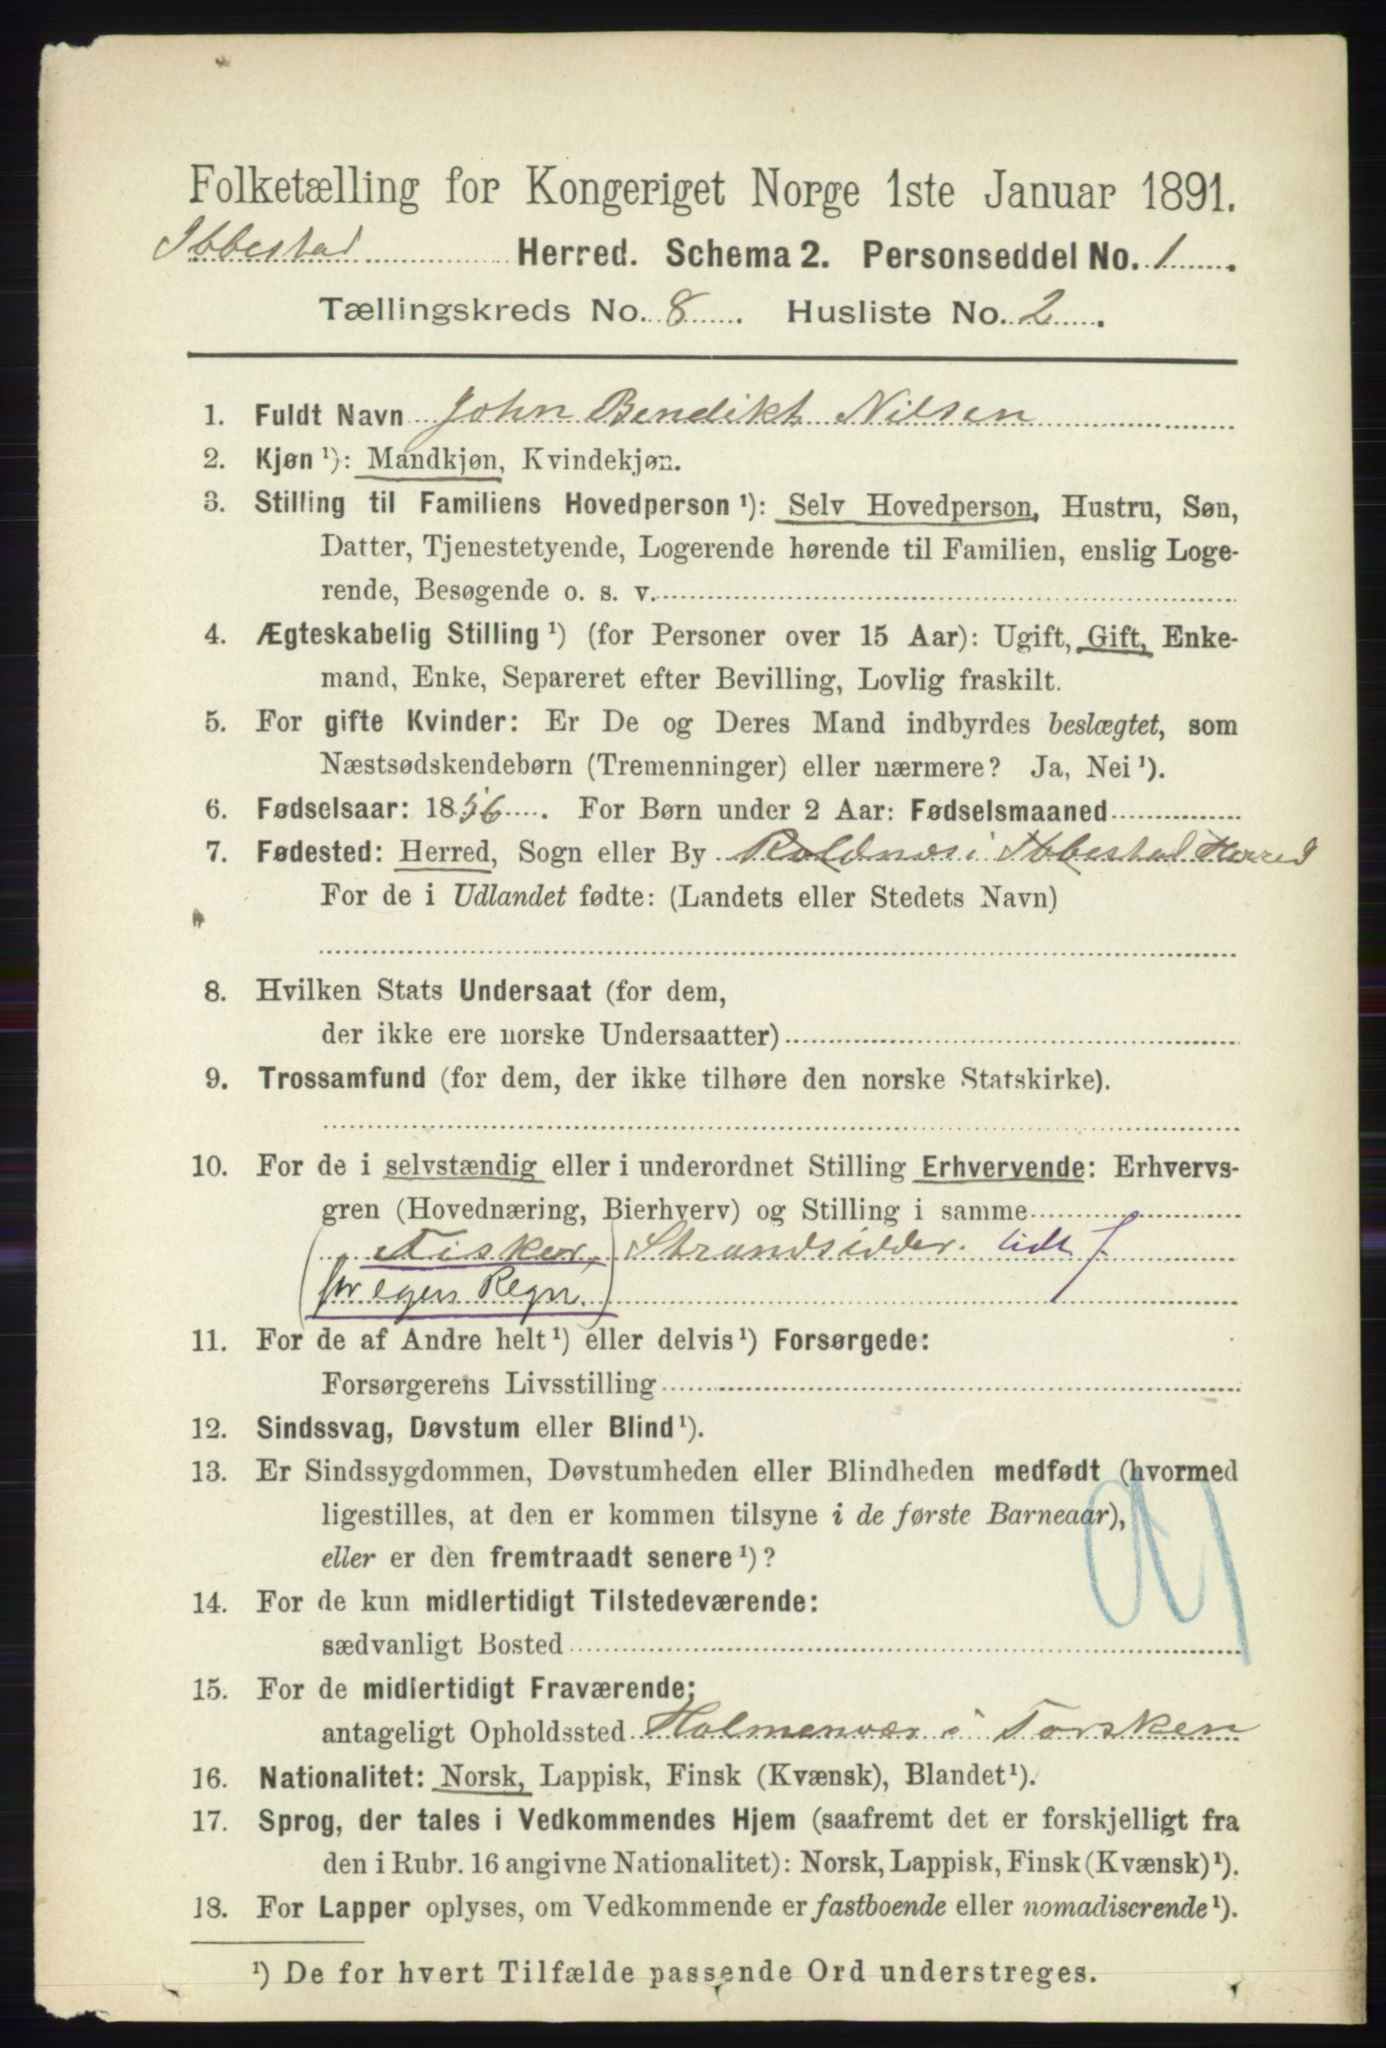 Folketælling for Kongeriget Norge 1ste Januar 1891.
Ibbestad Herred. Schema 2. Personseddel No. 1.
Tællingskreds No. 8. Husliste No. 2.
1. Fuldt Navn John Bendikt Nilsen
2. Kjøn ¹): Mandkjøn, Kvindekjøn.
3. Stilling til Familiens Hovedperson ¹): Selv Hovedperson, Hustru, Søn,
Datter, Tjenestetyende, Logerende hørende til Familien, enslig Loge-
rende, Besøgende o. s. v.
4. Ægteskabelig Stilling ¹) (for Personer over 15 Aar): Ugift, Gift, Enke-
mand, Enke, Separeret efter Bevilling, Lovlig fraskilt.
5. For gifte Kvinder: Er De og Deres Mand indbyrdes beslægtet, som
Næstsødskendebørn (Tremenninger) eller nærmere? Ja, Nei ¹).
6. Fødselsaar: 1856. For Børn under 2 Aar: Fødselsmaaned
7. Fødested: Herred, Sogn eller By Roldnæs i Ibbestad Herred
For de i Udlandet fødte: (Landets eller Stedets Navn)
8. Hvilken Stats Undersaat (for dem,
der ikke ere norske Undersaatter)
9. Trossamfund (for dem, der ikke tilhøre den norske Statskirke).
10. For de i selvstændig eller i underordnet Stilling Erhvervende: Erhvervs-
gren (Hovednæring, Bierhverv) og Stilling i samme
(Fisker, Strandsidder. lidt J
for egen Regn.)
11. For de af Andre helt ¹) eller delvis ¹) Forsørgede:
Forsørgerens Livsstilling
12. Sindssvag, Døvstum eller Blind ¹).
13. Er Sindssygdommen, Døvstumheden eller Blindheden medfødt (hvormed
ligestilles, at den er kommen tilsyne i de første Barneaar),
eller er den fremtraadt senere ¹)?
14. For de kun midlertidigt Tilstedeværende:
sædvanligt Bosted
15. For de midlertidigt Fraværende:
antageligt Opholdssted Holmenvær i Torsken
16. Nationalitet: Norsk, Lappisk, Finsk (Kvænsk), Blandet ¹).
17. Sprog, der tales i Vedkommendes Hjem (saafremt det er forskjelligt fra
den i Rubr. 16 angivne Nationalitet): Norsk, Lappisk, Finsk (Kvænsk) ¹).
18. For Lapper oplyses, om Vedkommende er fastboende eller nomadiserende ¹).
¹) De for hvert Tilfælde passende Ord understreges.